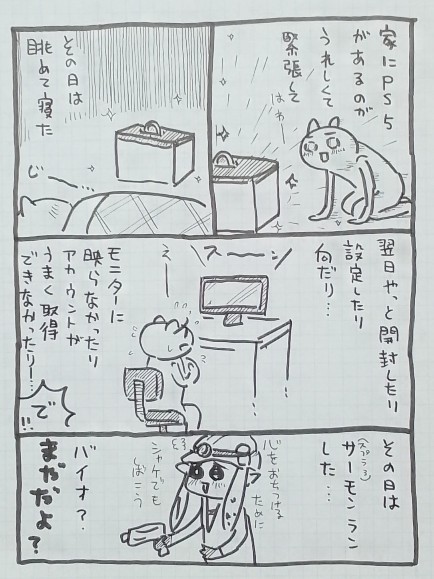 家にPS5
があるのが
うれしくて
緊張して
はわ―
その日は
眺めて寝た
じ~……
翌日やっと開封したり
設定したり
何だり…
スーーン
え――
モニターに
映らなかったり
アカウントが
うまく取得
できなかったりー…
で!!
その日は
(スプラ3)
サーモンラン
した…
心をおちつける
ために
シャケでも
しばこう
バイオ?
まだだよ?